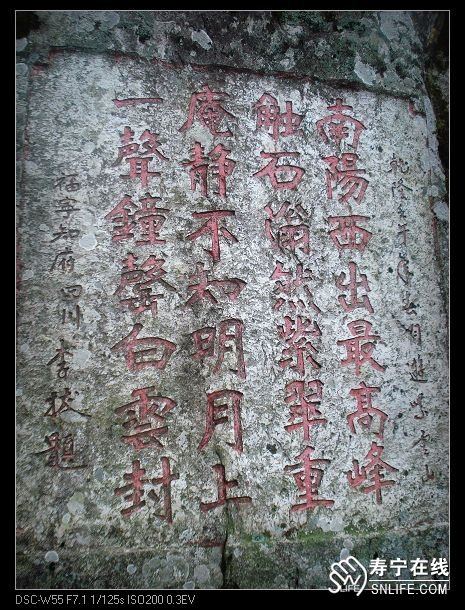 乾隆 年 月遊 山
南陽西出最高峰
触石 然紫翠重
庵静不知明月上
一聲鐘磬白雲封
福寧知府四川李拔題
寿宁在线
SNLIFE.COM
DSC-W55 F7.1 1/125s ISO200 0.3EV